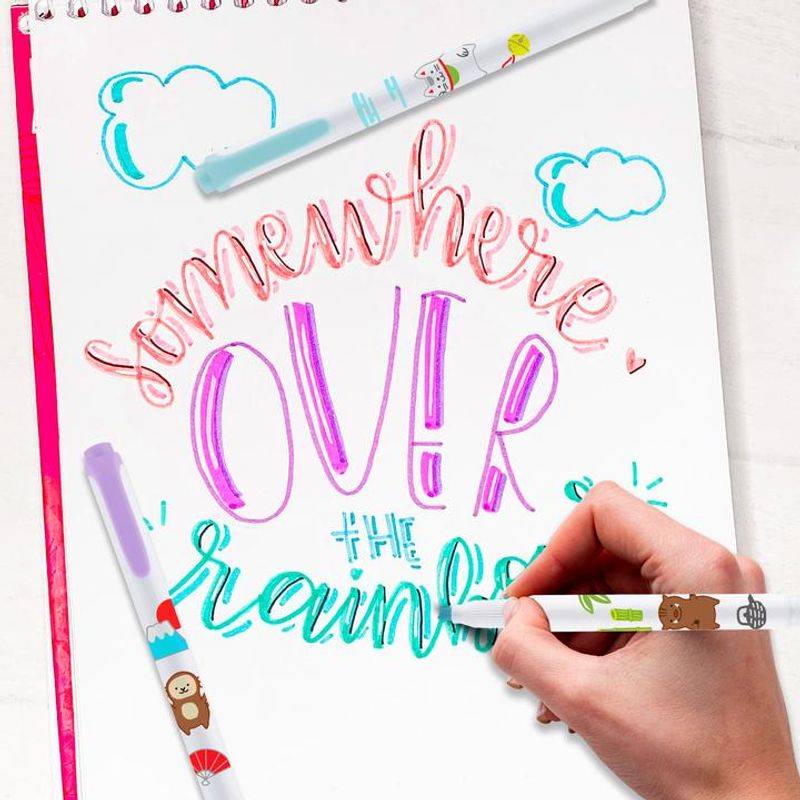 somewhere
OVER
THE
rainbo